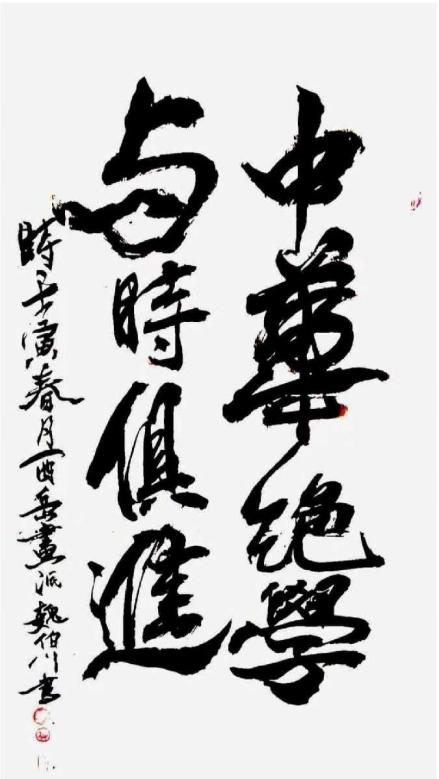 中華絶學
与時俱進
時壬寅春月西岳畫派魏伯川書